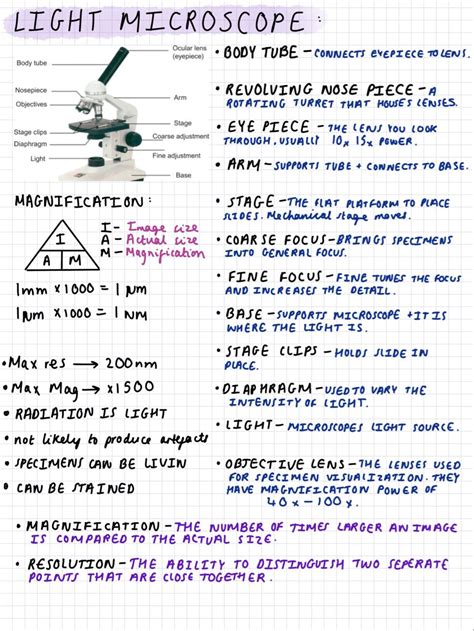 LIGHT MICROSCOPE:
Body tube
Nosepiece
Objectives
Stage clips
Diaphragm
Light
Ocular lens
(eyepiece)
Arm
Stage
Coarse adjustment
Fine adjustment
Base
• BODY TUBE – CONNECTS EYEPIECE TO LENS.
• REVOLVING NOSE PIECE – A
ROTATING TURRET THAT HOUSES LENSES.
• EYE PIECE – THE LENS YOU LOOK
THROUGH, USUALLY 10x 15x POWER.
• ARM – SUPPORTS TUBE + CONNECTS TO BASE.
MAGNIFICATION:
I
A M
I - Image size
A - Actual size
M - Magnification
1mm x1000 = 1 μm
1μm x1000 = 1 NM
• Max res → 200nm
• Max Mag → x1500
• RADIATION IS LIGHT
• not likely to produce artefacts
• SPECIMENS CAN BE LIVIN
• CAN BE STAINED
• STAGE – THE FLAT PLATFORM TO PLACE
SLIDES. Mechanical stage moves.
• COARSE FOCUS – BRINGS SPECIMENS
INTO GENERAL FOCUS.
• FINE FOCUS – FINE TUNES THE FOCUS
AND INCREASES THE DETAIL.
• BASE – SUPPORTS MICROSCOPE + IT IS
WHERE THE LIGHT IS.
• STAGE CLIPS – HOLDS SLIDE IN
PLACE.
• DIAPHRAGM – USED TO VARY THE
INTENSITY OF LIGHT.
• LIGHT – MICROSCOPES LIGHT SOURCE.
• OBJECTIVE LENS – THE LENSES USED
FOR SPECIMEN VISUALIZATION. THEY
HAVE MAGNIFICATION POWER OF
40x – 100x.
• MAGNIFICATION – THE NUMBER OF TIMES LARGER AN IMAGE
IS COMPARED TO THE ACTUAL SIZE.
• RESOLUTION – THE ABILITY TO DISTINGUISH TWO SEPERATE
POINTS THAT ARE CLOSE TOGETHER.